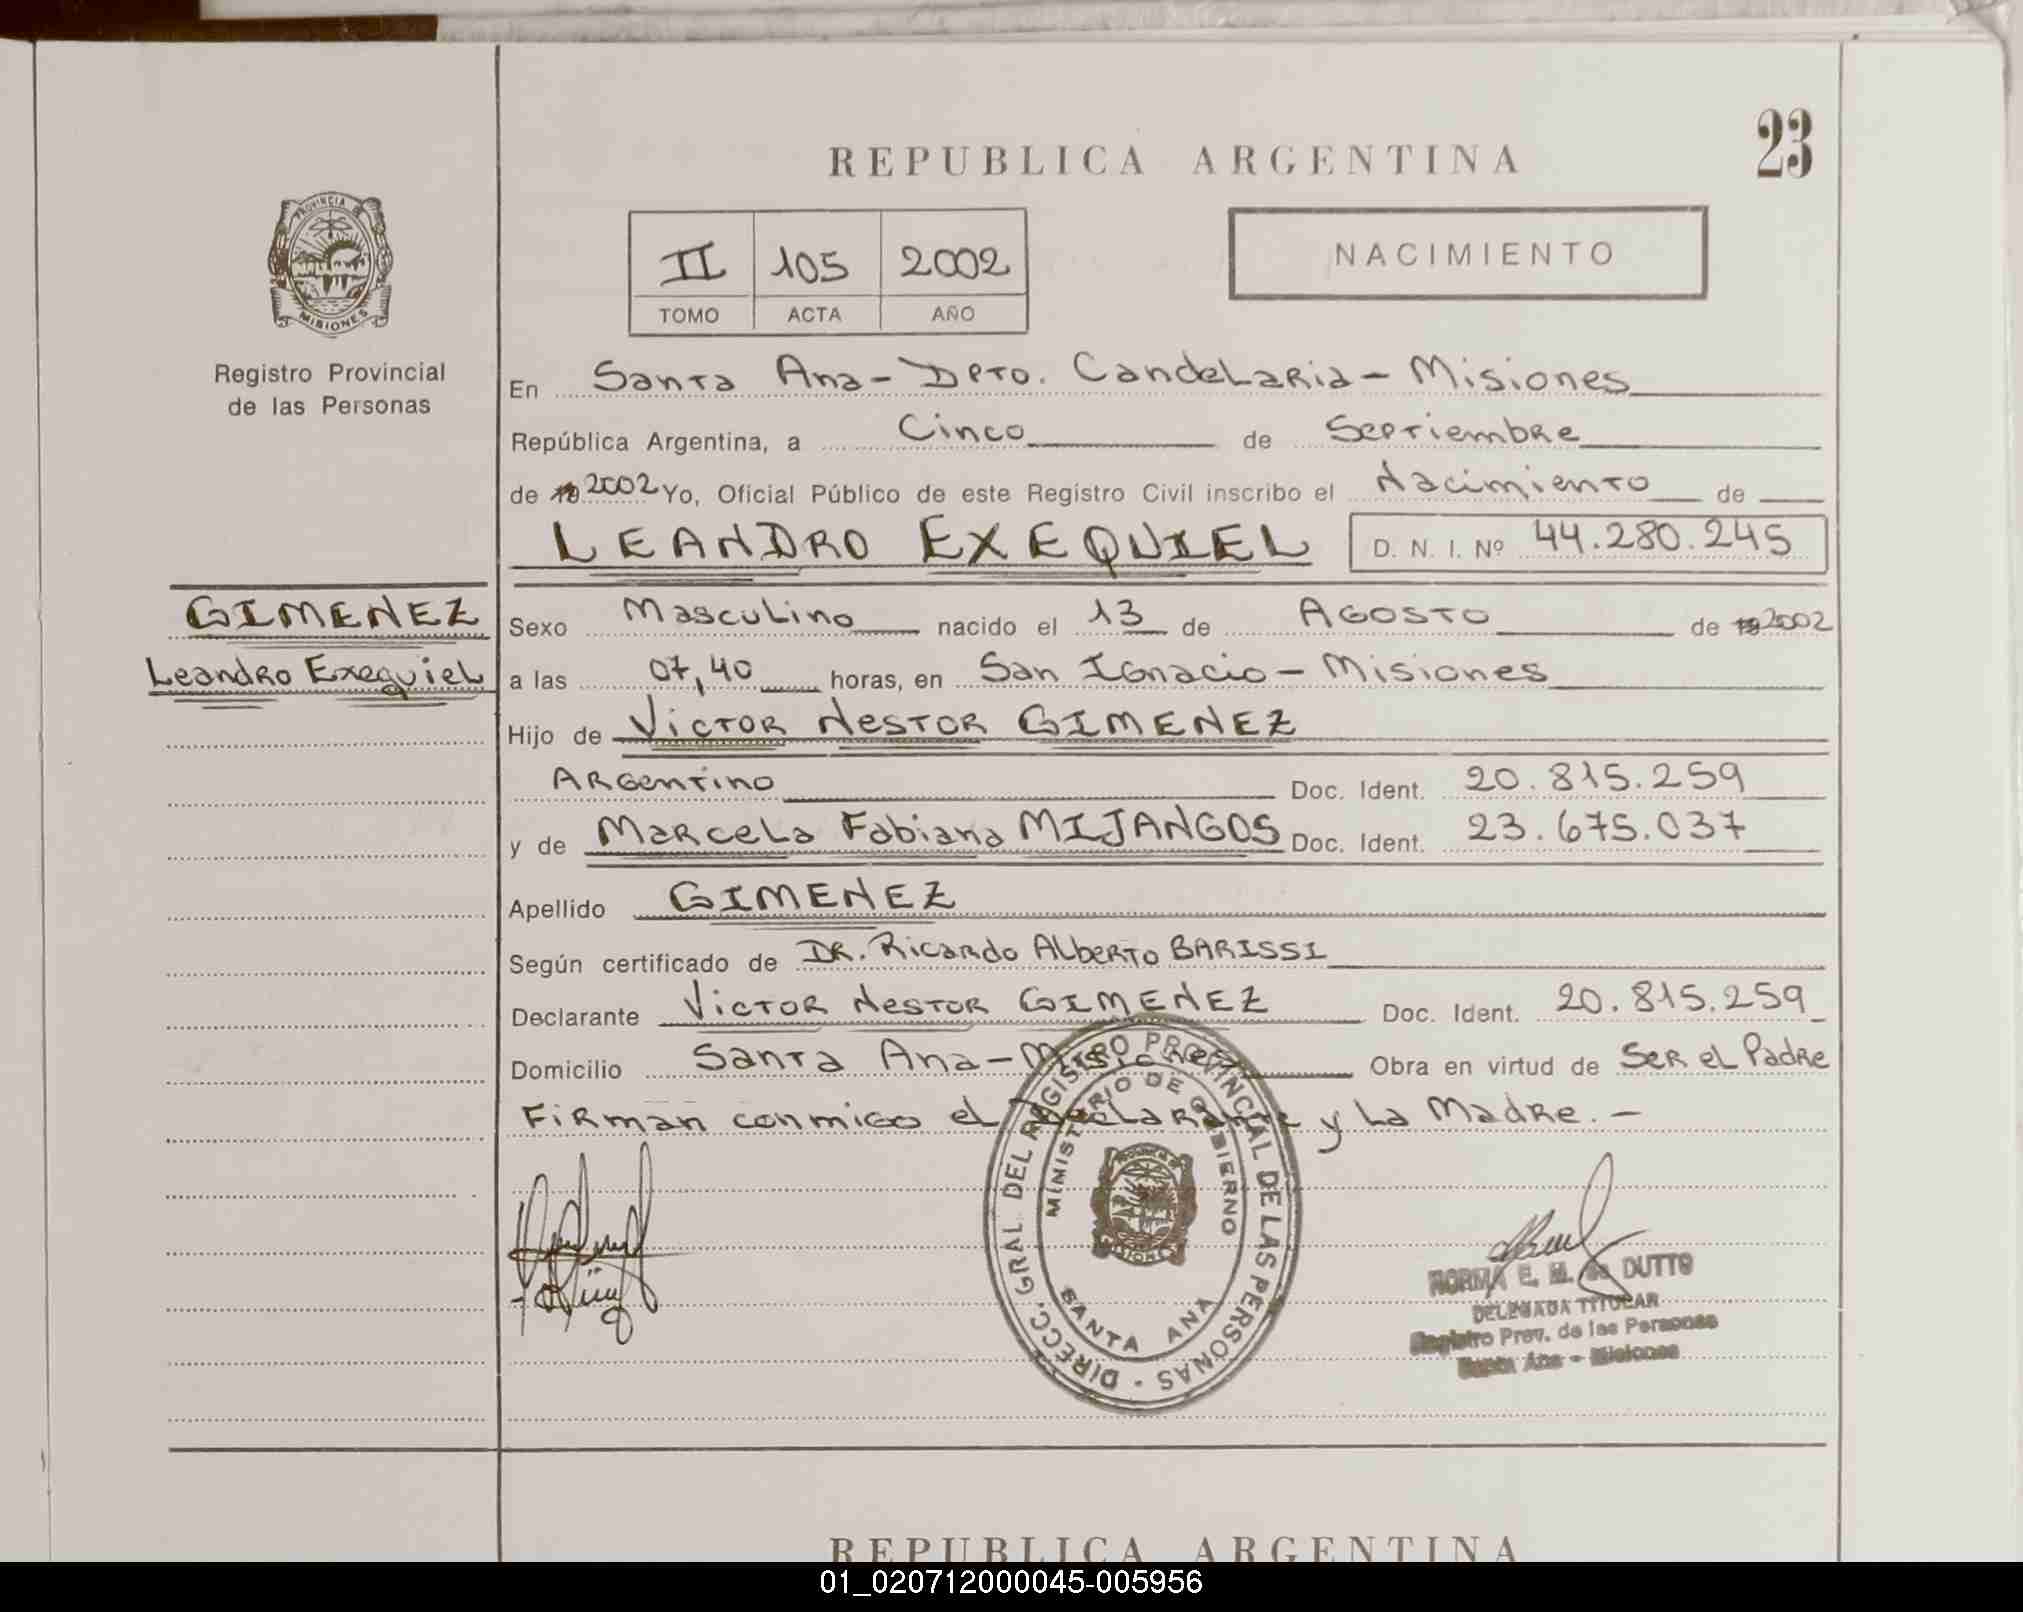 23
REPUBLICA ARGENTINA
PROVINCIA DE
MISIONES
Registro Provincial
de las Personas
II 105 2002
TOMO ACTA AÑO
NACIMIENTO
En Santa Ana - Dpto. Candelaria - Misiones
República Argentina, a Cinco de Septiembre
de 19 2002 Yo, Oficial Público de este Registro Civil inscribo el Nacimiento de
LEANDRO EXEQUIEL D. N. I. Nº 44.280.245
GIMENEZ
Leandro Exequiel
Sexo Masculino nacido el 13 de Agosto de 19 2002
a las 07,40 horas, en San Ignacio - Misiones
Hijo de Victor Nestor GIMENEZ
Argentino Doc. Ident. 20.815.259
y de Marcela Fabiana MIJANGOS Doc. Ident. 23.675.037
Apellido GIMENEZ
Según certificado de DR. Ricardo Alberto BARISSI
Declarante Victor Nestor GIMENEZ Doc. Ident. 20.815.259
Domicilio Santa Ana - Misiones Obra en virtud de Ser el Padre
Firman conmigo el Declarante y La Madre. -
DIRECC. GRAL. DEL REGISTRO PROVINCIAL DE LAS PERSONAS -
MINISTERIO DE GOBIERNO
MISIONES
SANTA ANA
NORMA E. M. de DUTTO
DELEGADA TITULAR
Registro Prov. de las Personas
Santa Ana - Misiones
REPUBLICA ARGENTINA
01_020712000045-005956